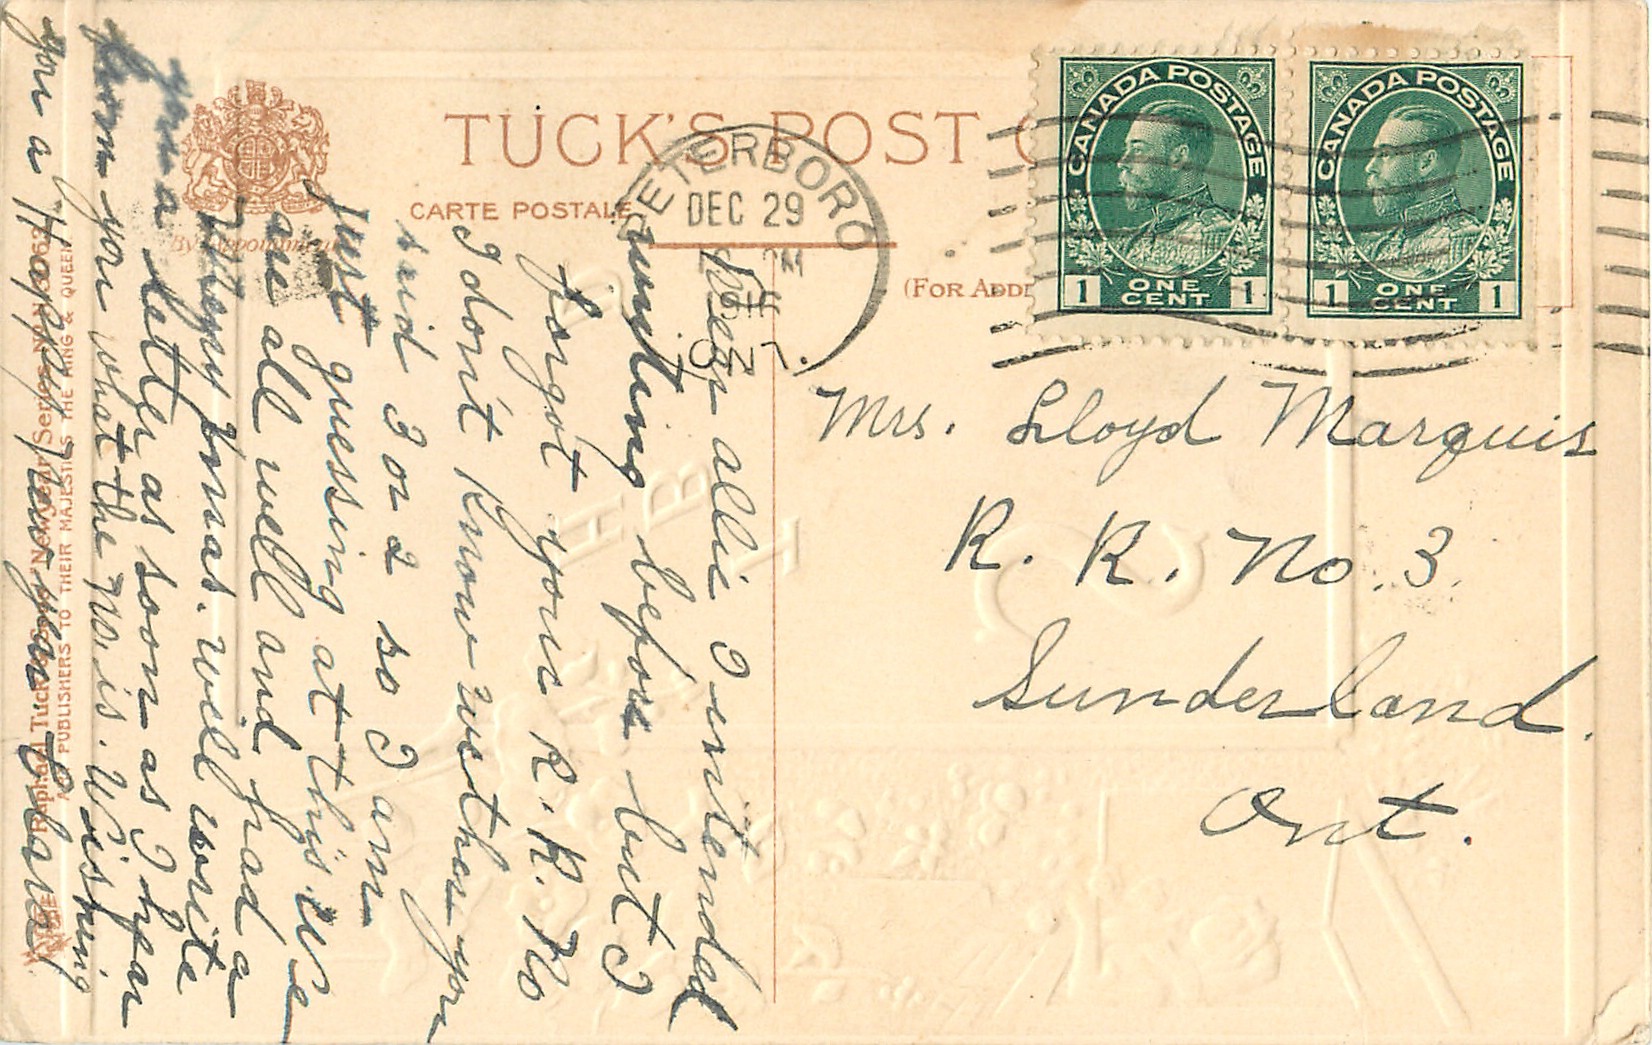 TUCK'S POST C
CARTE POSTALE
(FOR ADD
PETERBORO
DEC 29
PM
ONT.
CANADA POSTAGE
1 ONE CENT 1
CANADA POSTAGE
1 ONE CENT 1
Mrs. Lloyd Marquis
R. R. No. 3.
Sunderland.
Ont.
Dear allie I intended
writing before but I
forgot your R. R. No
I don't know wether you
said 3 or 2 so I am
Just guessing at this. We
are all well and had a
Merry Xmas. will write
you a letter as soon as I hear
from you what the No. is. Wishing
you a Happy New year Clara
AND PUBLISHERS TO THEIR MAJESTIES THE KING & QUEEN